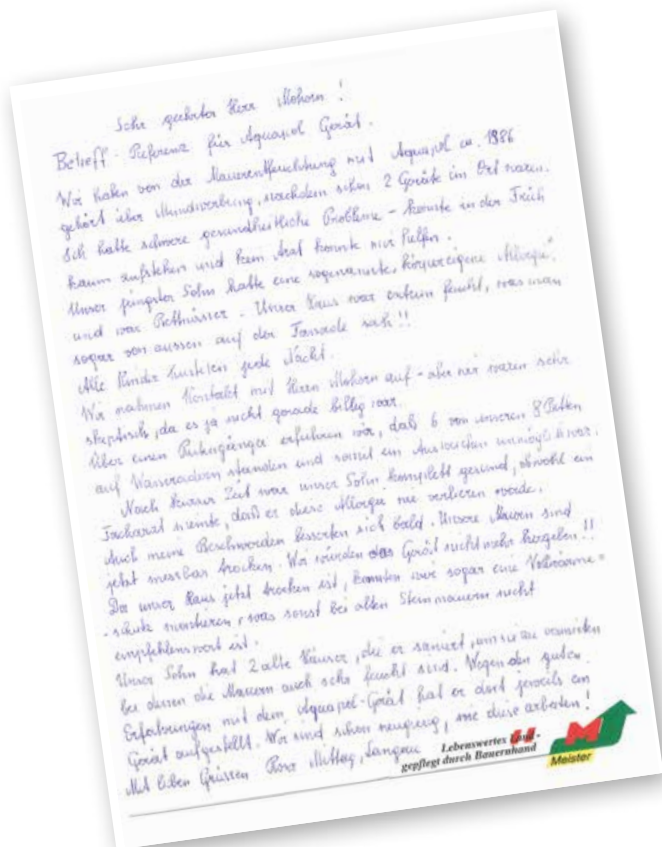 Sehr geehrter Herr Mohorn!
Betreff - Referenz für Aquapol Gerät.
Wir haben von der Mauerentfeuchtung mit Aquapol ca. 1986
gehört über Mundwerbung, nachdem schon 2 Geräte im Ort waren.
Ich hatte schwere gesundheitliche Probleme - konnte in der Früh
kaum aufstehen und kein Arzt konnte mir helfen.
Unser jüngster Sohn hatte eine sogenannte „körpereigene Allergie"
und war Bettnässer. Unser Haus war extrem feucht, was man
sogar von aussen auf der Fassade sah!!
Alle Kinder husteten jede Nacht.
Wir nahmen Kontakt mit Herrn Mohorn auf - aber wir waren sehr
skeptisch, da es ja nicht gerade billig war.
Über einen Rutengänger erfuhren wir, daß 6 von unseren 8 Betten
auf Wasseradern standen und somit ein Ausweichen unmöglich war.
Nach kurzer Zeit war unser Sohn komplett gesund, obwohl ein
Facharzt meinte, daß er diese Allergie nie verlieren werde.
Auch meine Beschwerden besserten sich bald. Unsere Mauern sind
jetzt messbar trocken. Wir würden das Gerät nicht mehr hergeben!!
Da unser Haus jetzt trocken ist, konnten wir sogar eine Vollwärme=
schutz montieren, was sonst bei alten Steinmauern nicht
empfehlenswert ist.
Unser Sohn hat 2 alte Häuser, die er saniert, um sie zu vermieten
bei denen die Mauern auch sehr feucht sind. Wegen den guten
Erfahrungen mit dem Aquapol-Gerät hat er dort jeweils ein
Gerät aufgestellt. Wir sind schon neugierig, wie diese arbeiten!
Mit lieben Grüssen Rosa
Lebenswertes Land -
gepflegt durch Bauernhand
M
Meister